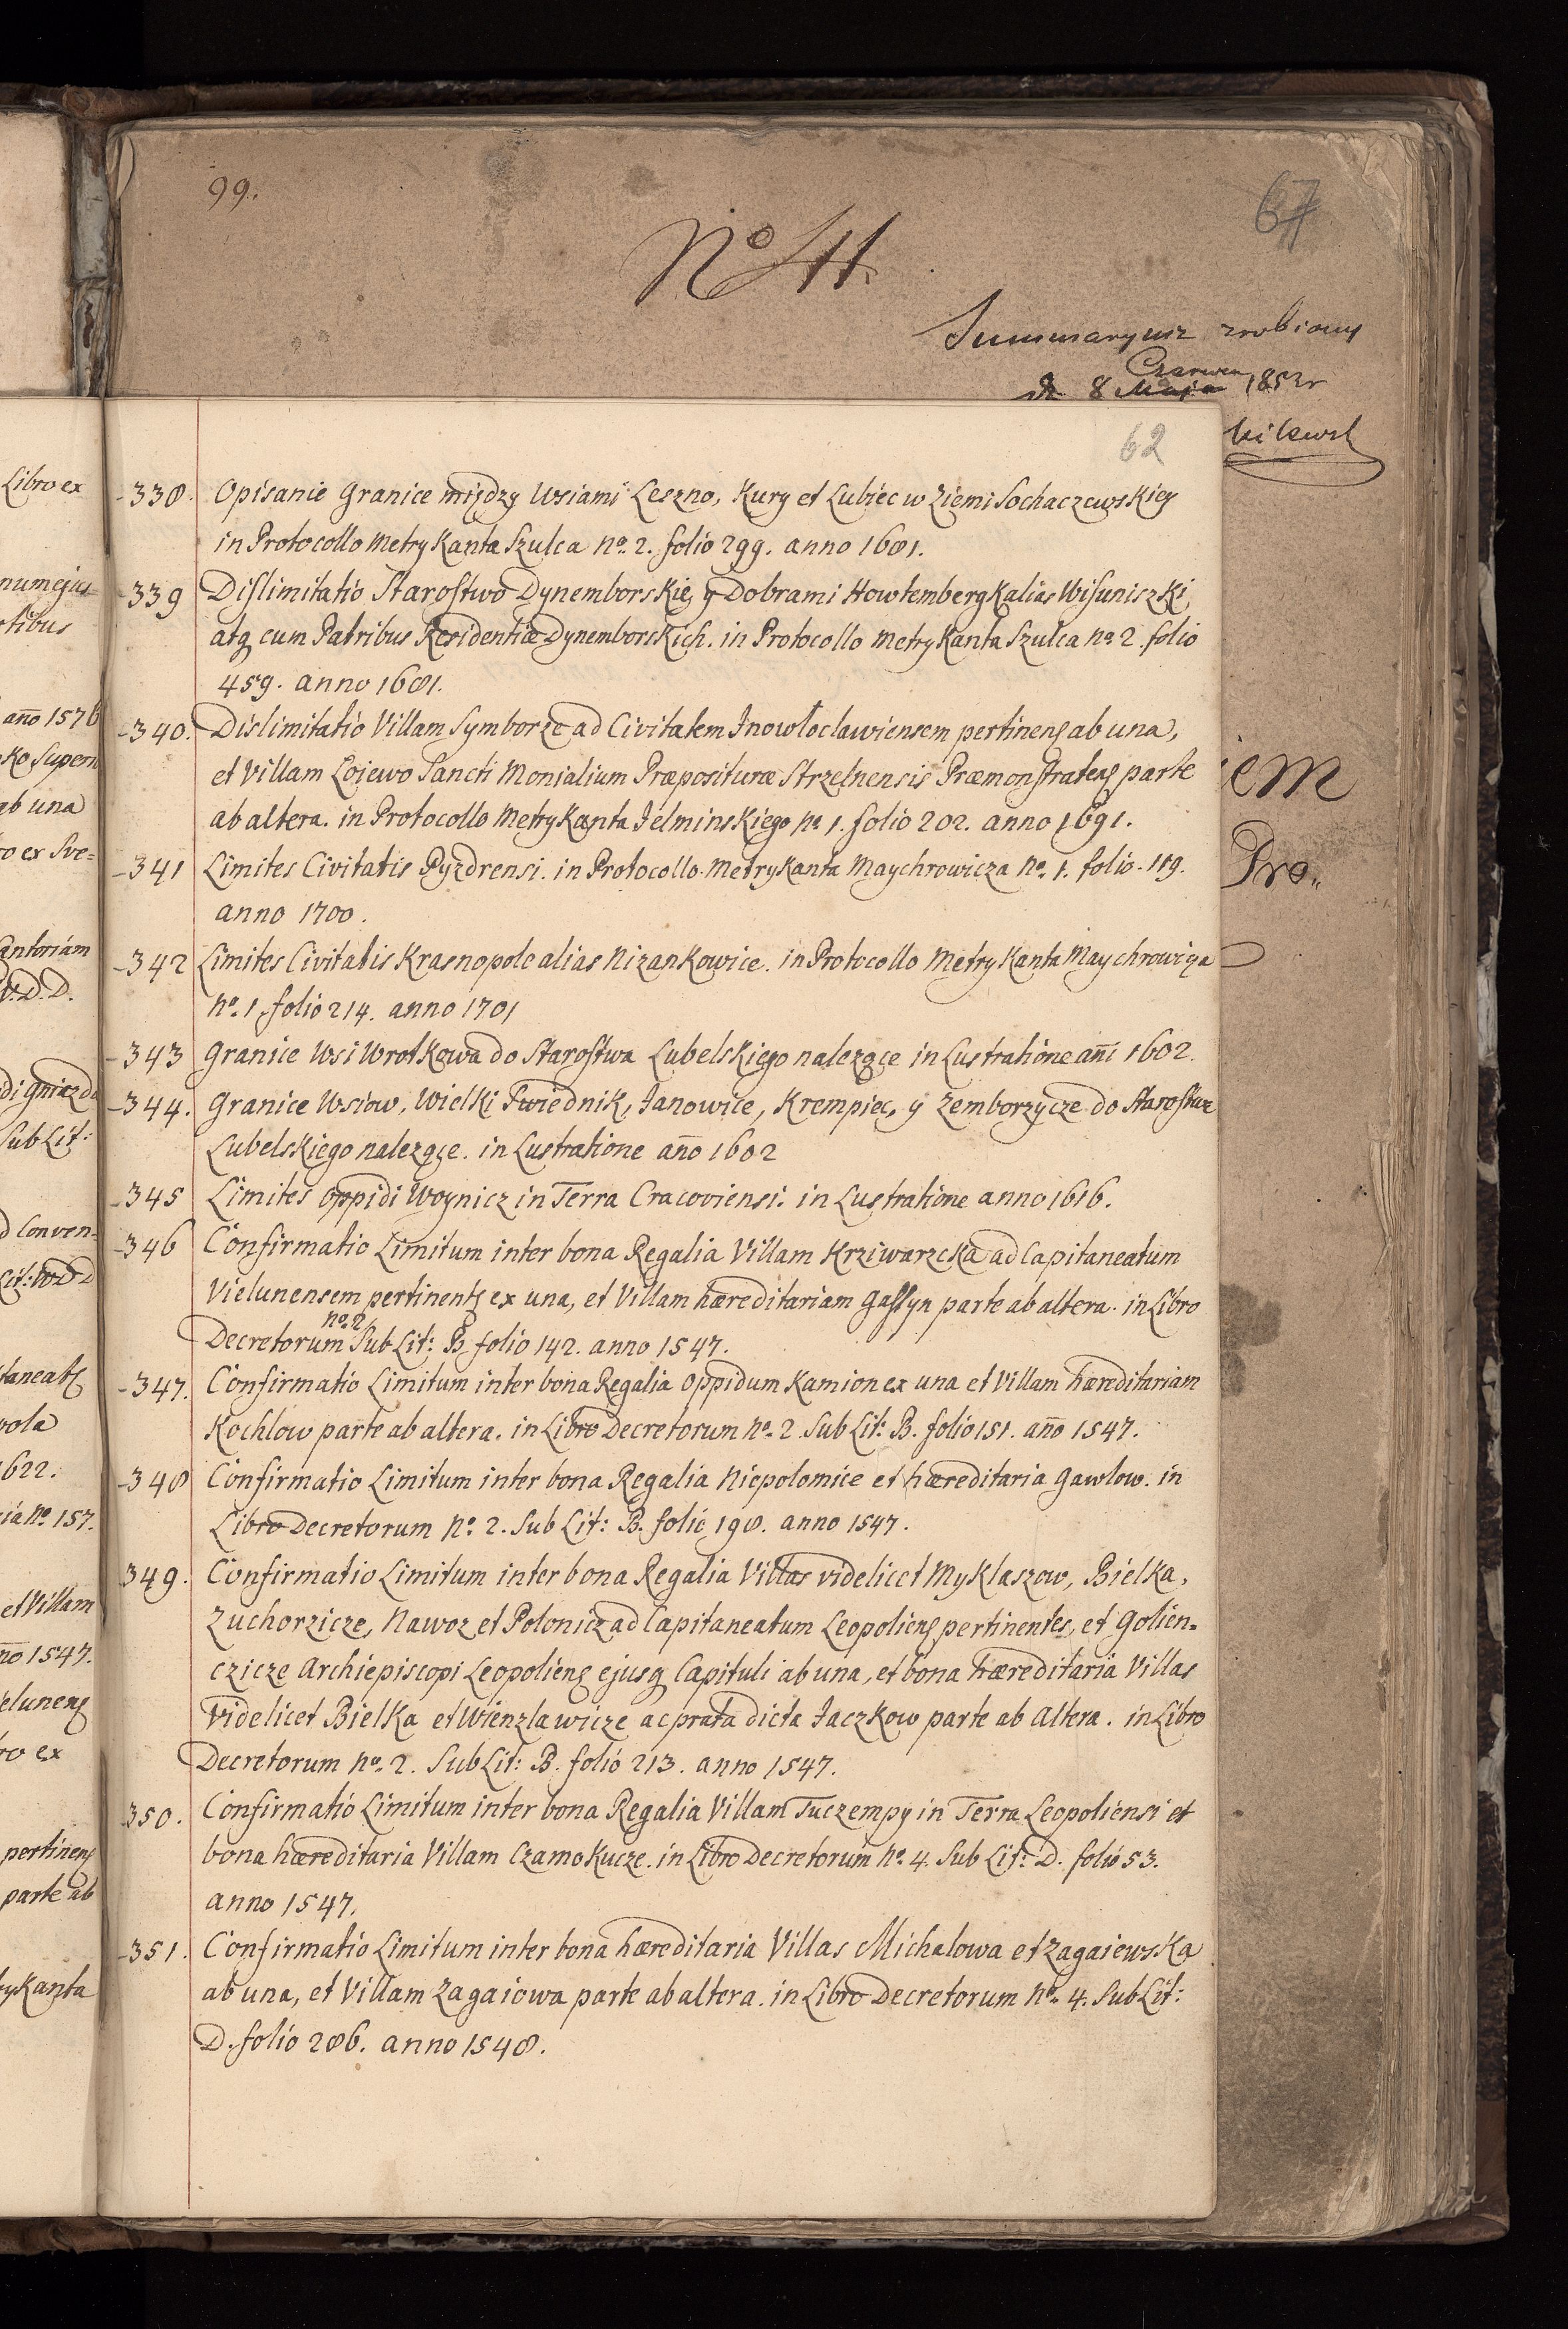 99.
67
No 44.
Summaryusz zrobiony
Czerwca
8 Maja 1852r
62
kilewsk
338. Opisanie Granice między Wsiami Leszno, Kury et Lubiec w Ziemi Sochaczewskiey
in Protocollo Metrykanta Szulca No. 2. folio 299. anno 1681.
339 Dislimitatio Starostwo Dynemborskie y Dobrami Howtembergk alias Wisuniszki
atq cum Patribus Residentiæ Dynemborskich. in Protocollo Metrykanta Szulca No 2. folio
459. anno 1681.
340. Dislimitatio Villam Symborze ad Civitatem Inowłoclawiensem pertinens ab una,
et Villam Lojewo Sancti Monialium Præposituræ Strzelnensis Præmonstratens parte
ab altera. in Protocollo Metrykanta Jelminskiego No 1. folio 202. anno 1691.
341 Limites Civitatis Pyzdrensi. in Protocollo Metrykanta Maychrowicza No. 1. folio. 119.
anno 1700.
342 Limites Civitatis Krasnopole alias Nizankowice. in Protocollo Metrykanta Maychrowicza
No. 1. folio 214. anno 1701
343 Granice Wsi Wrotkowa do Starostwa Lubelskiego nalezące in Lustratione añi 1602.
344. Granice Wsiow, Wielki Swiednik, Janowice, Krempiec, y Zemborzycze do Starostwa
Lubelskiego nalezące. in Lustratione año 1602
345 Limites Oppidi Woynicz in Terra Cracoviensi. in Lustratione anno 1616.
346 Confirmatio Limitum inter bona Regalia Villam Krziwarzcka ad Capitaneatum
Vielunensem pertinents ex una, et Villam hæreditariam Gassyn parte ab altera. in Libro
No. 2
Decretorum Sub Lit: B. folio 142. anno 1547.
347. Confirmatio Limitum inter bona Regalia Oppidum Kamion ex una et Villam hæreditariam
Kochlow parte ab altera. in Libro Decretorum No. 2. Sub Lit: B. folio 151. año 1547.
348 Confirmatio Limitum inter bona Regalia Niepolomice et hæreditaria Gawlow. in
Libro Decretorum No. 2. Sub Lit: B. folio 198. anno 1547.
349. Confirmatio Limitum inter bona Regalia Villas videlicet Myklaszow, Bielka,
Zuchorzicze, Nawoz et Polonicz ad Capitaneatum Leopoliens pertinentes, et Golien-
czicze Archiepiscopi Leopoliens ejusq Capituli ab una, et bona hæreditaria Villas
videlicet Bielka et Wienzlawicze ac prata dicta Jaczkow parte ab Altera. in Libro
Decretorum No. 2. Sub Lit: B. folio 213. anno 1547.
350. Confirmatio Limitum inter bona Regalia Villam Tuczempy in Terra Leopoliensi et
bona hæreditaria Villam Czarnokucze. in Libro Decretorum No. 4. Sub Lit: D. folio 53.
anno 1547.
351. Confirmatio Limitum inter bona hæreditaria Villas Michalowa et Zagaiewska
ab una, et Villam Zagaiowa parte ab altera. in Libro Decretorum No. 4. Sub Lit:
D. folio 286. anno 1548.
iem
Pro„
Libro ex
numejus
otibus
año 1576
ko Supern
ab una
ro ex Sve=
Cantoriam
V. D. D.
di Gniazda
Sub Lit:
d Conven-
taneats
wola
1622.
ia No. 157.
et Villam
no 1547.
eluneng
ro ex
pertinens
parte ab
rykanta